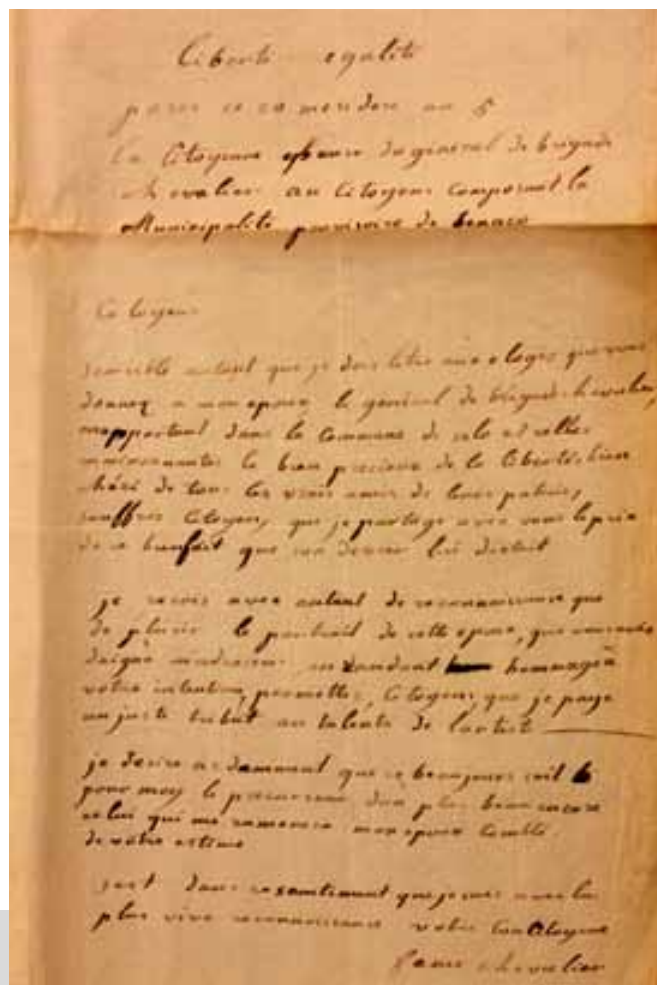 Liberté egalité
paris ce 20 messidore an 5
La Citoyenne epouse du général de brigade
chevalier au Citoyens Composant la
Municipalité provisoire de
Citoyens
sensible autant que je dois letre aux eloges que vous
donnez a mon epoux, le général de brigade chevalier,
en apportant dans la Commune de salo et celles
le bien precieux de la liberté, bien
chéri de tous les vrais amis de leurs patries,
souffres Citoyens, que je partage avec vous le prix
de ce bienfait que son devoir lui dictait
je recois avec autant de reconnaissance que
de plaisir le portrait de cette epoux, que vous avés
daigné madresser, en rendant hommage a
votre intention, permettes, Citoyens, que je paye
un juste tribut au talents de lartiste
je desire ardamment que ce beau jour soit
pour moy le precurseur dun plus beau encore
celui qui me ramenera mon epoux Comblé
de votre estime
cest dans ce sentiment que je suis avec la
plus vive reconnaissance votre ConCitoyenne
chevalier